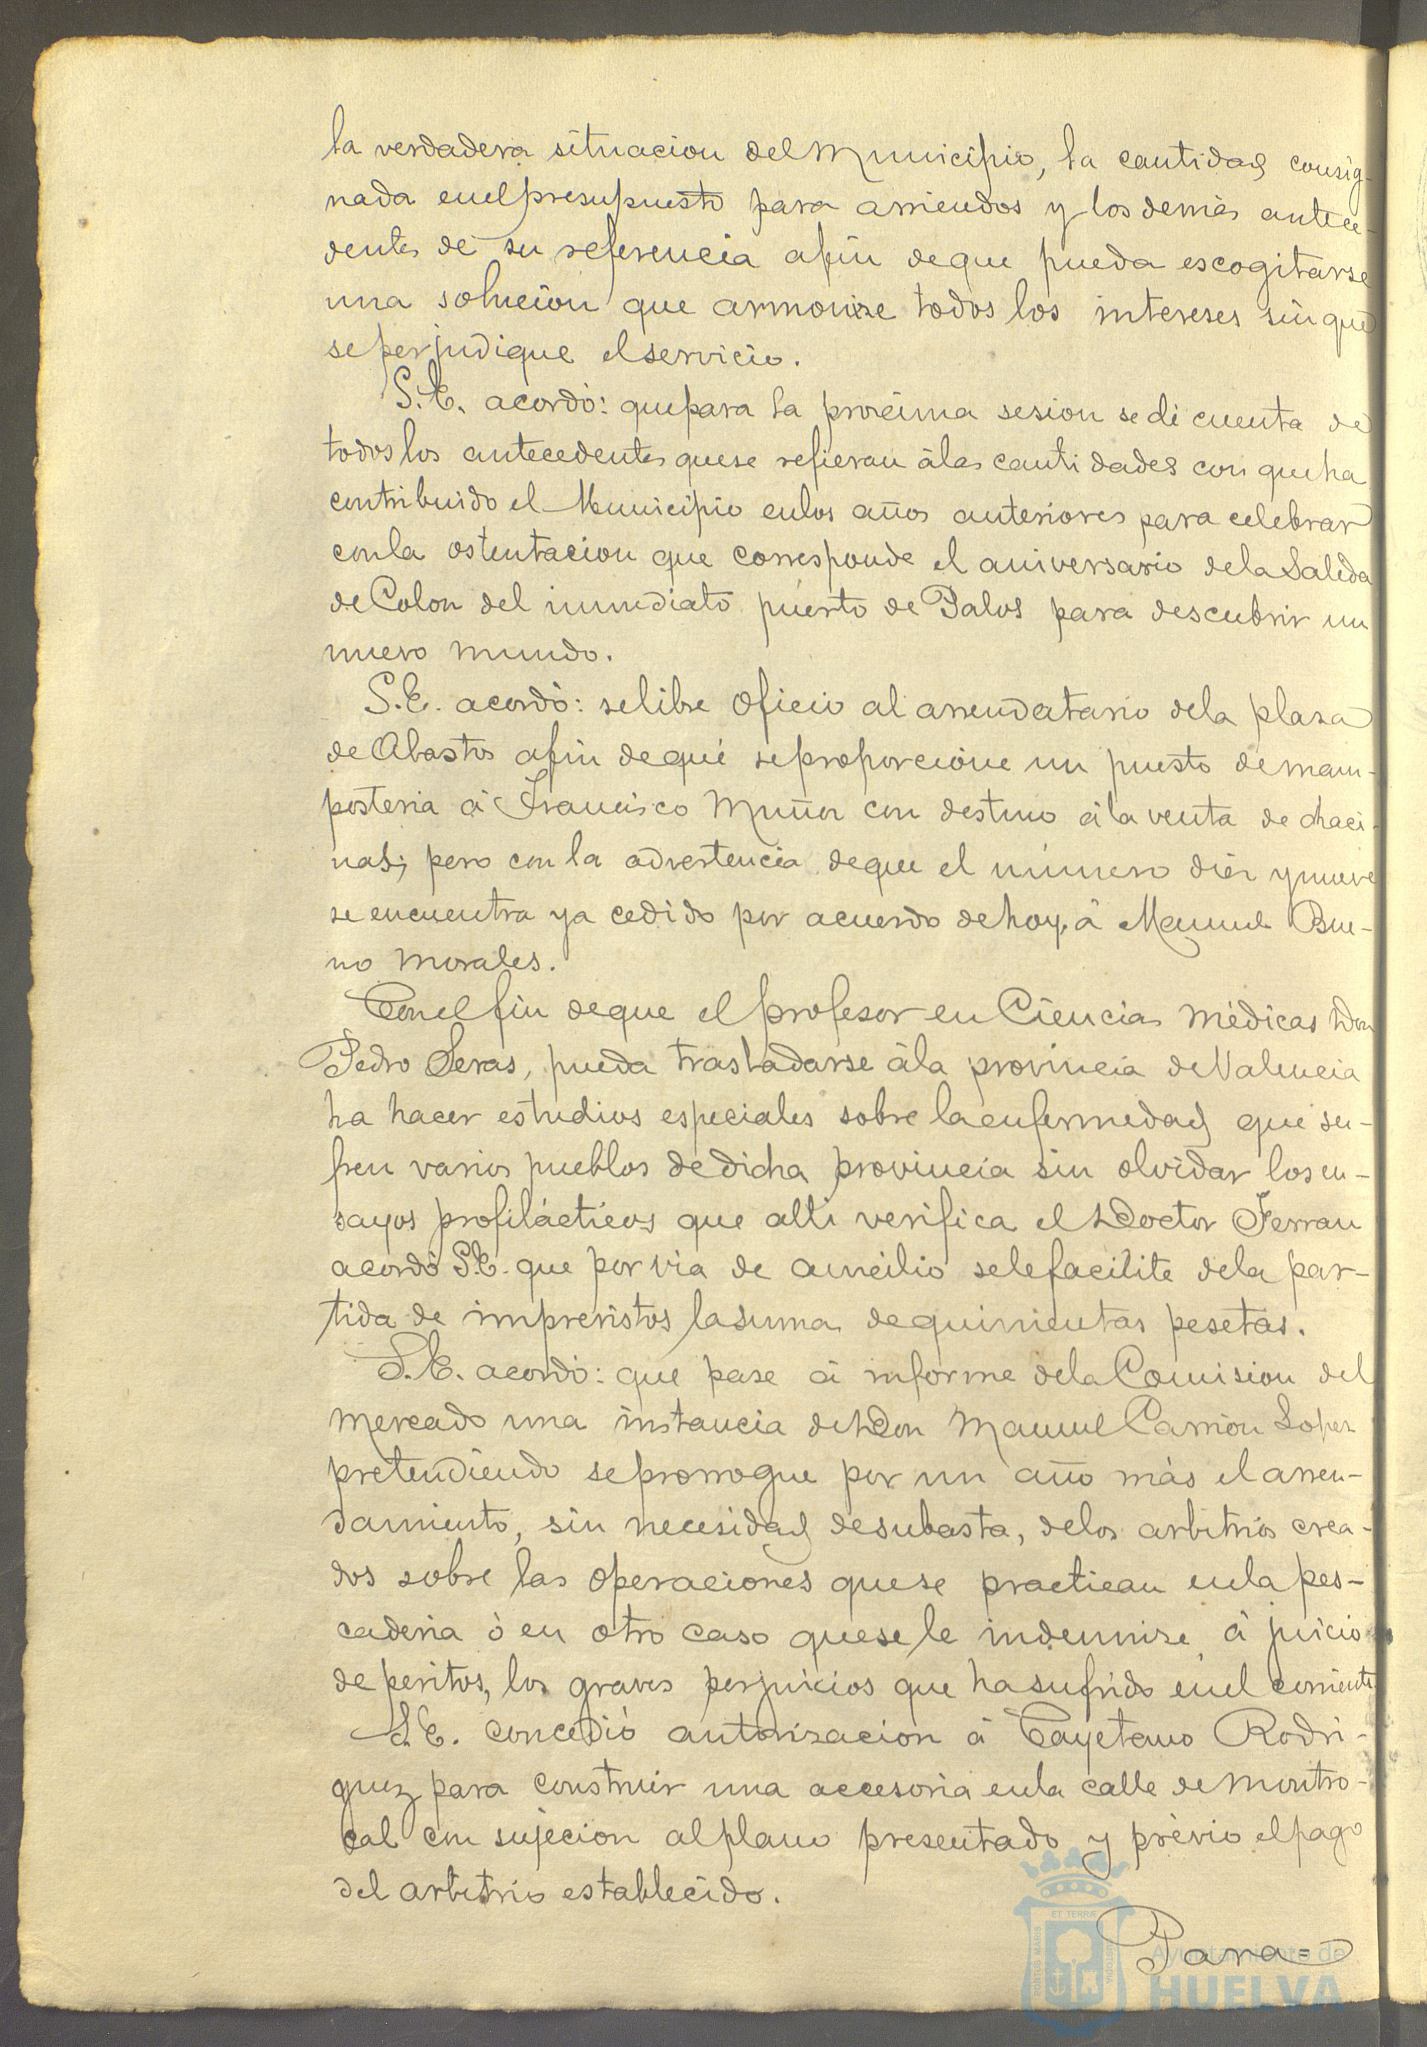 la verdadera situacion del Municipio, la cantidad consig-
nada en el presupuesto para arriendos y los demás antece-
dentes de su referencia afin de que pueda escogitarse
una solucion que armonize todos los intereses sin que
se perjudique el servicio.
S. E. acordó: que para la procsima sesion se dé cuenta de
todos los antecedentes que se refieran á las cantidades con que ha
contribuido el Municipio en los años anteriores para celebrar
con la ostentacion que corresponde el aniversario de la Salida
de Colon del inmediato puerto de Palos para descubrir un
nuevo mundo.
S. E. acordó: se libre oficio al arrendatario de la plaza
de Abastos afin de que se proporcione un puesto de mam-
posteria á Francisco Muñoz con destino á la venta de chaci-
nas; pero con la advertencia de que el número diez y nueve
se encuentra ya cedido por acuerdo de hoy, á Manuel Bue-
no Morales.
Con el fin de que el profesor en Ciencias médicas Don
Pedro Seras, pueda trasladarse á la provincia de Valencia
ha hacer estudios especiales sobre la enfermedad que su-
fren varios pueblos de dicha provincia sin olvidar los en-
sayos profilácticos que alli verifica el Doctor Ferran
acordó S. E. que por via de aucilio se le facilite de la par-
tida de imprevistos la suma de quinientas pesetas.
S. E. acordó: que pase á informe de la Comision del
mercado una instancia de Don Manuel Carrion Lopez
pretendiendo se prorrogue por un año más el arren-
damiento, sin necesidad de subasta, de los arbitrios crea-
dos sobre las operaciones que se practican en la pes-
caderia ó en otro caso que se le indemnize á juicio
de peritos, los graves perjuicios que ha sufrido en el corriente
S. E. concedió autorizacion á Cayetano Rodri-
guez para construir una accesoria en la calle de Montro-
cal con sujecion al plano presentado y prévio el pago
del arbitrio establecido.
Para=
Ayuntamiento de
HUELVA